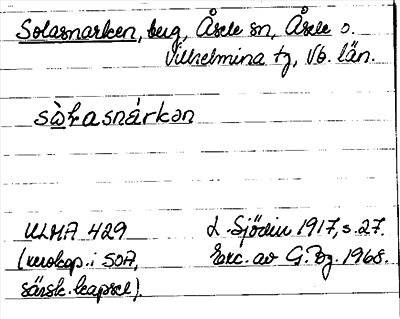 Solasnarken, berg, Åsele sn, Åsele o.
Vilhelmina tg, Vb. län.
sòłasnárkən
ULMA 429
(xerokop. i SOA,
särsk. kapsel).
L. Sjödin 1917, s. 27.
Exc. av G. Bg. 1968.